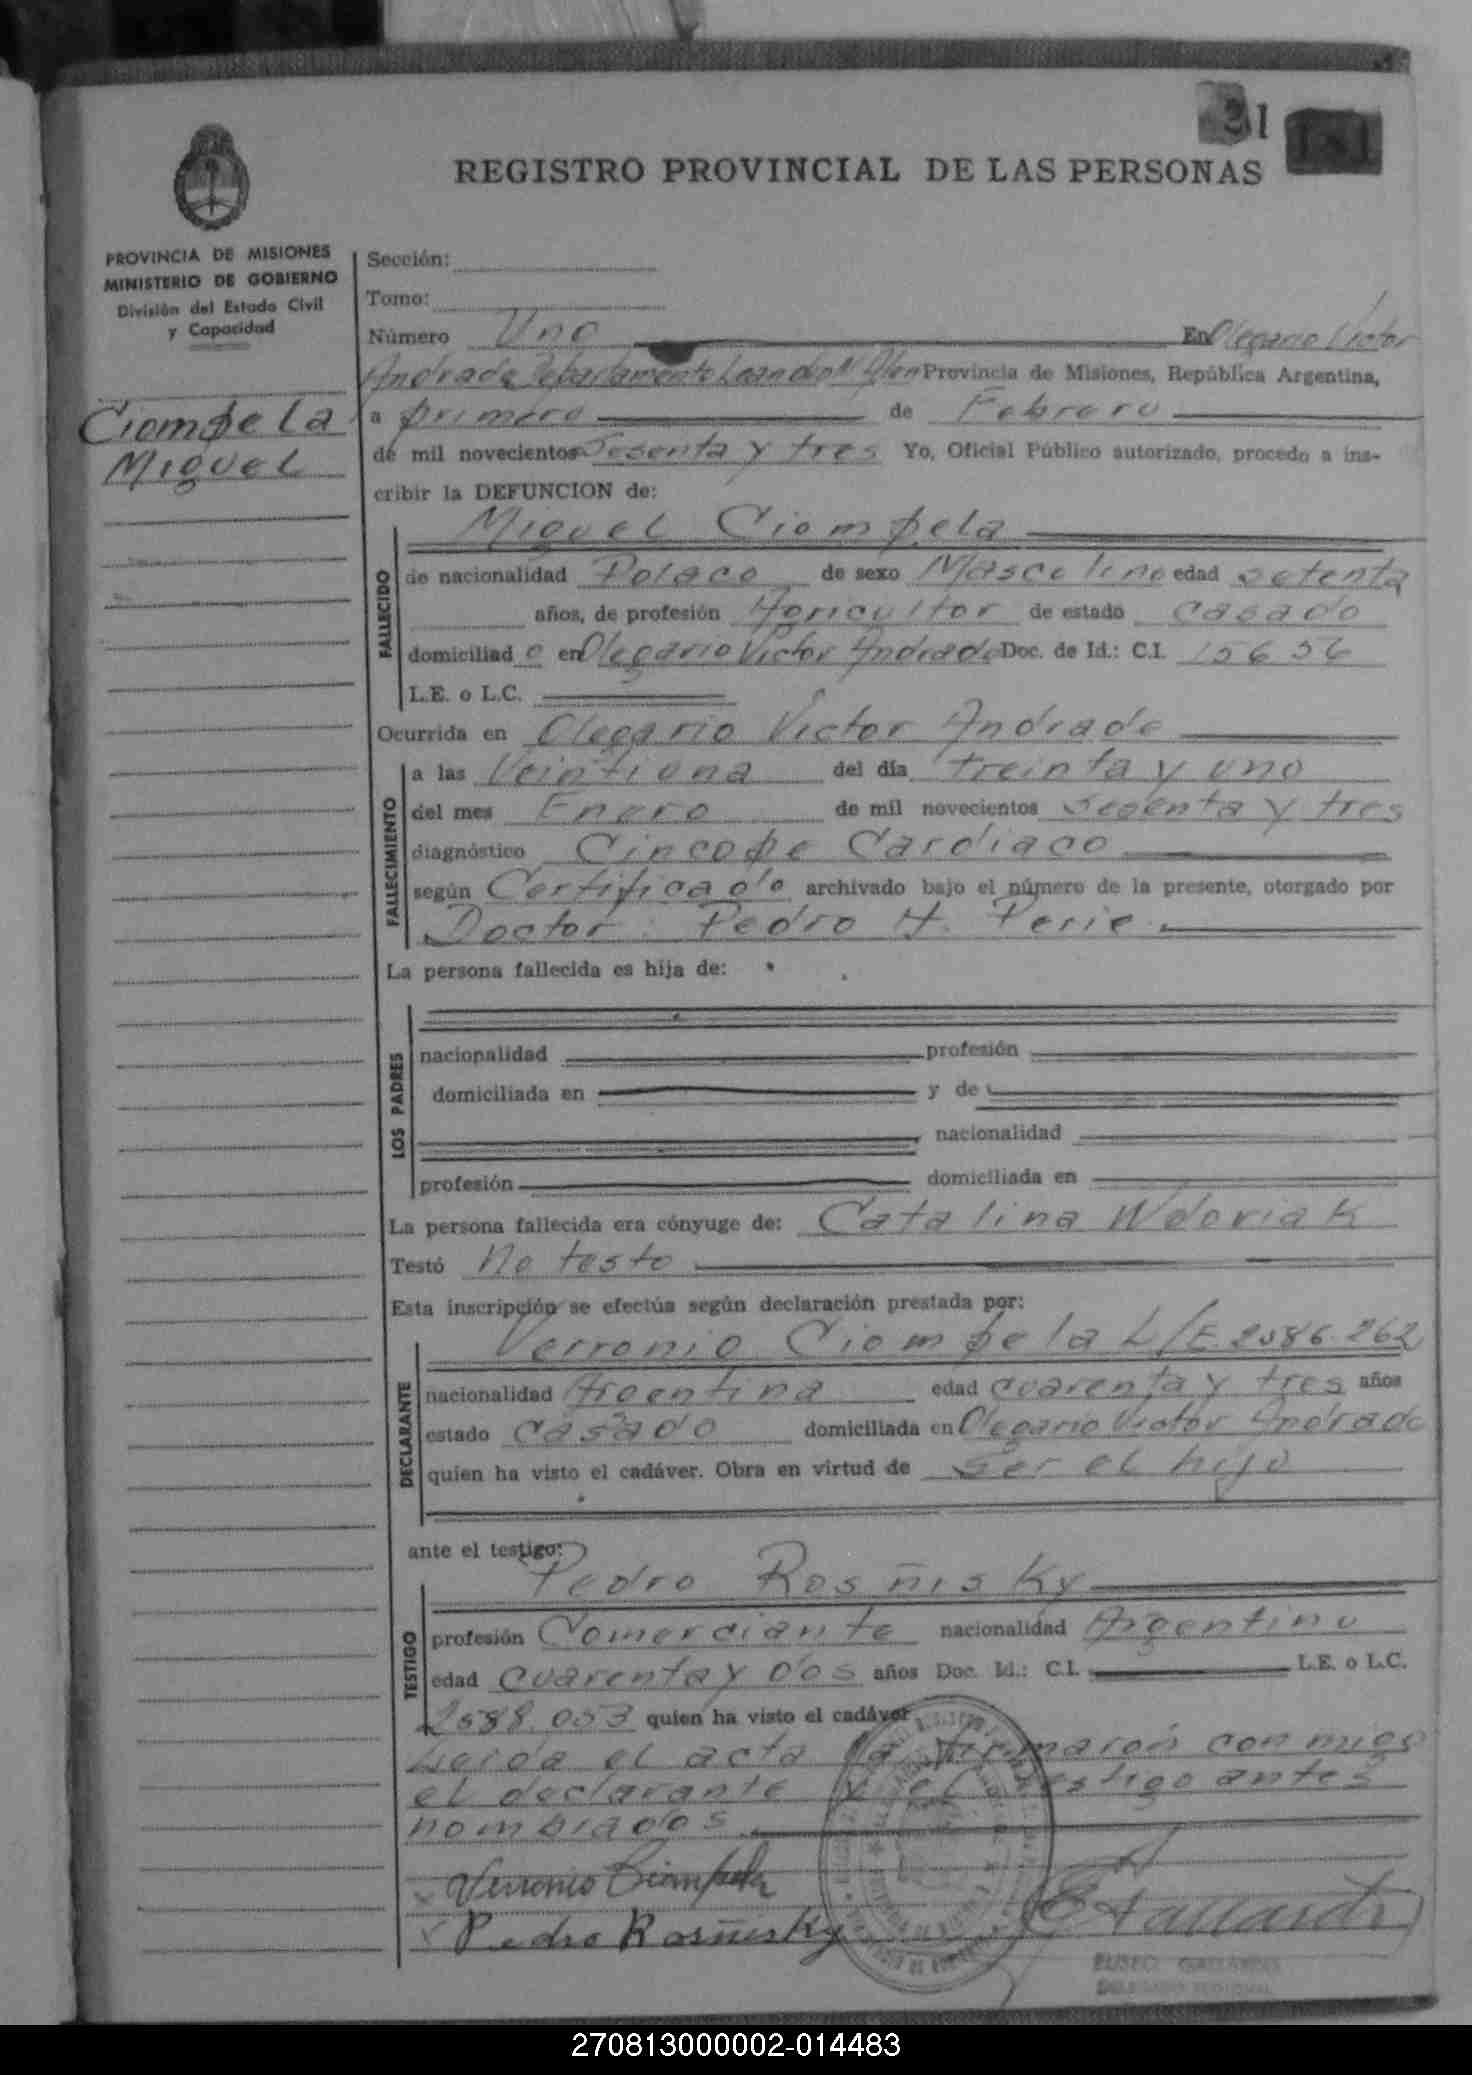 31
181
REGISTRO PROVINCIAL DE LAS PERSONAS
PROVINCIA DE MISIONES
MINISTERIO DE GOBIERNO
División del Estado Civil
y Capacidad
Ciompela
Miguel
Sección:
Tomo:
Número Uno En Olegario Victor
Andrade Departamento Leandro N. Alen Provincia de Misiones, República Argentina,
a primero de Febrero
de mil novecientos Sesenta y tres Yo, Oficial Público autorizado, procedo a ins-
cribir la DEFUNCION de:
FALLECIDO
Miguel Ciompela
de nacionalidad Polaco de sexo Masculino edad setenta
años, de profesión Agricultor de estado casado
domiciliado en Olegario Victor Andrade Doc. de Id.: C.I. 15656
L.E. o L.C.
Ocurrida en Olegario Victor Andrade
FALLECIMIENTO
a las Veintiuna del día treinta y uno
del mes Enero de mil novecientos sesenta y tres
diagnóstico Cincope Cardiaco
según Certificado archivado bajo el número de la presente, otorgado por
Doctor: Pedro H. Perie.
La persona fallecida es hija de:
LOS PADRES
nacionalidad profesión
domiciliada en y de
nacionalidad
profesión domiciliada en
La persona fallecida era cónyuge de: Catalina Wdoviak
Testó No testo
Esta inscripción se efectúa según declaración prestada por:
DECLARANTE
Verronio Ciompela L/E. 2586.262
nacionalidad Argentina edad cuarenta y tres años
estado casado domiciliada en Olegario Victor Andrade
quien ha visto el cadáver. Obra en virtud de ser el hijo
ante el testigo:
TESTIGO
Pedro Rosñisky
profesión Comerciante nacionalidad Argentino
edad cuarenta y dos años Doc. Id.: C.I. L.E. o L.C.
2588.053 quien ha visto el cadáver
Leida el acta la firmaron con migo
el declarante y el testigo antes
nombrados
Verronio Ciompela
Pedro Rosñisky
270813000002-014483